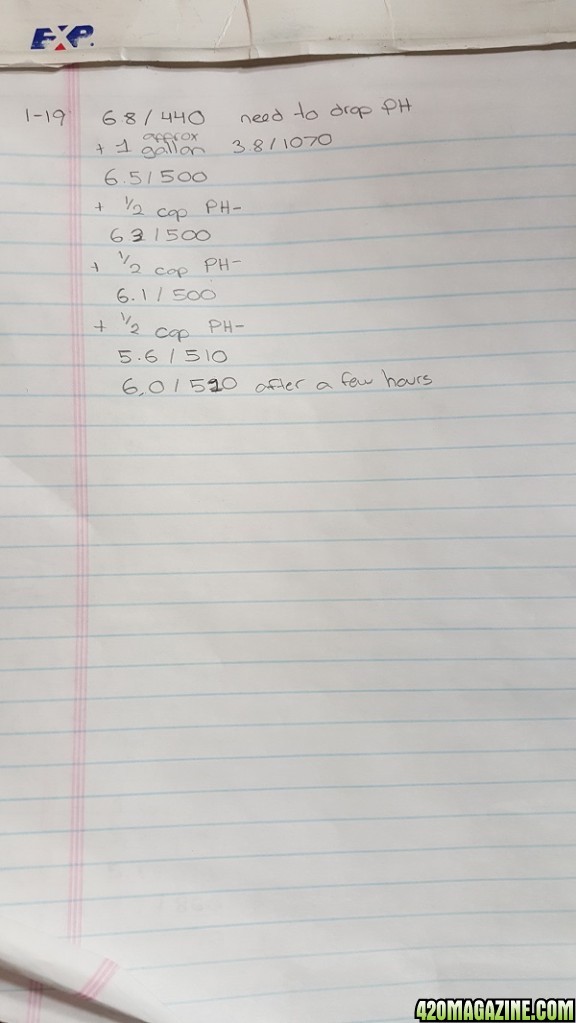 EXP.
1-19 6.8/440 need to drop PH
+ 1 approx gallon 3.8/1070
6.5/500
+ 1/2 cap PH-
6.3/500
+ 1/2 cap PH-
6.1/500
+ 1/2 cap PH-
5.6/510
6.0/520 after a few hours
420MAGAZINE.COM